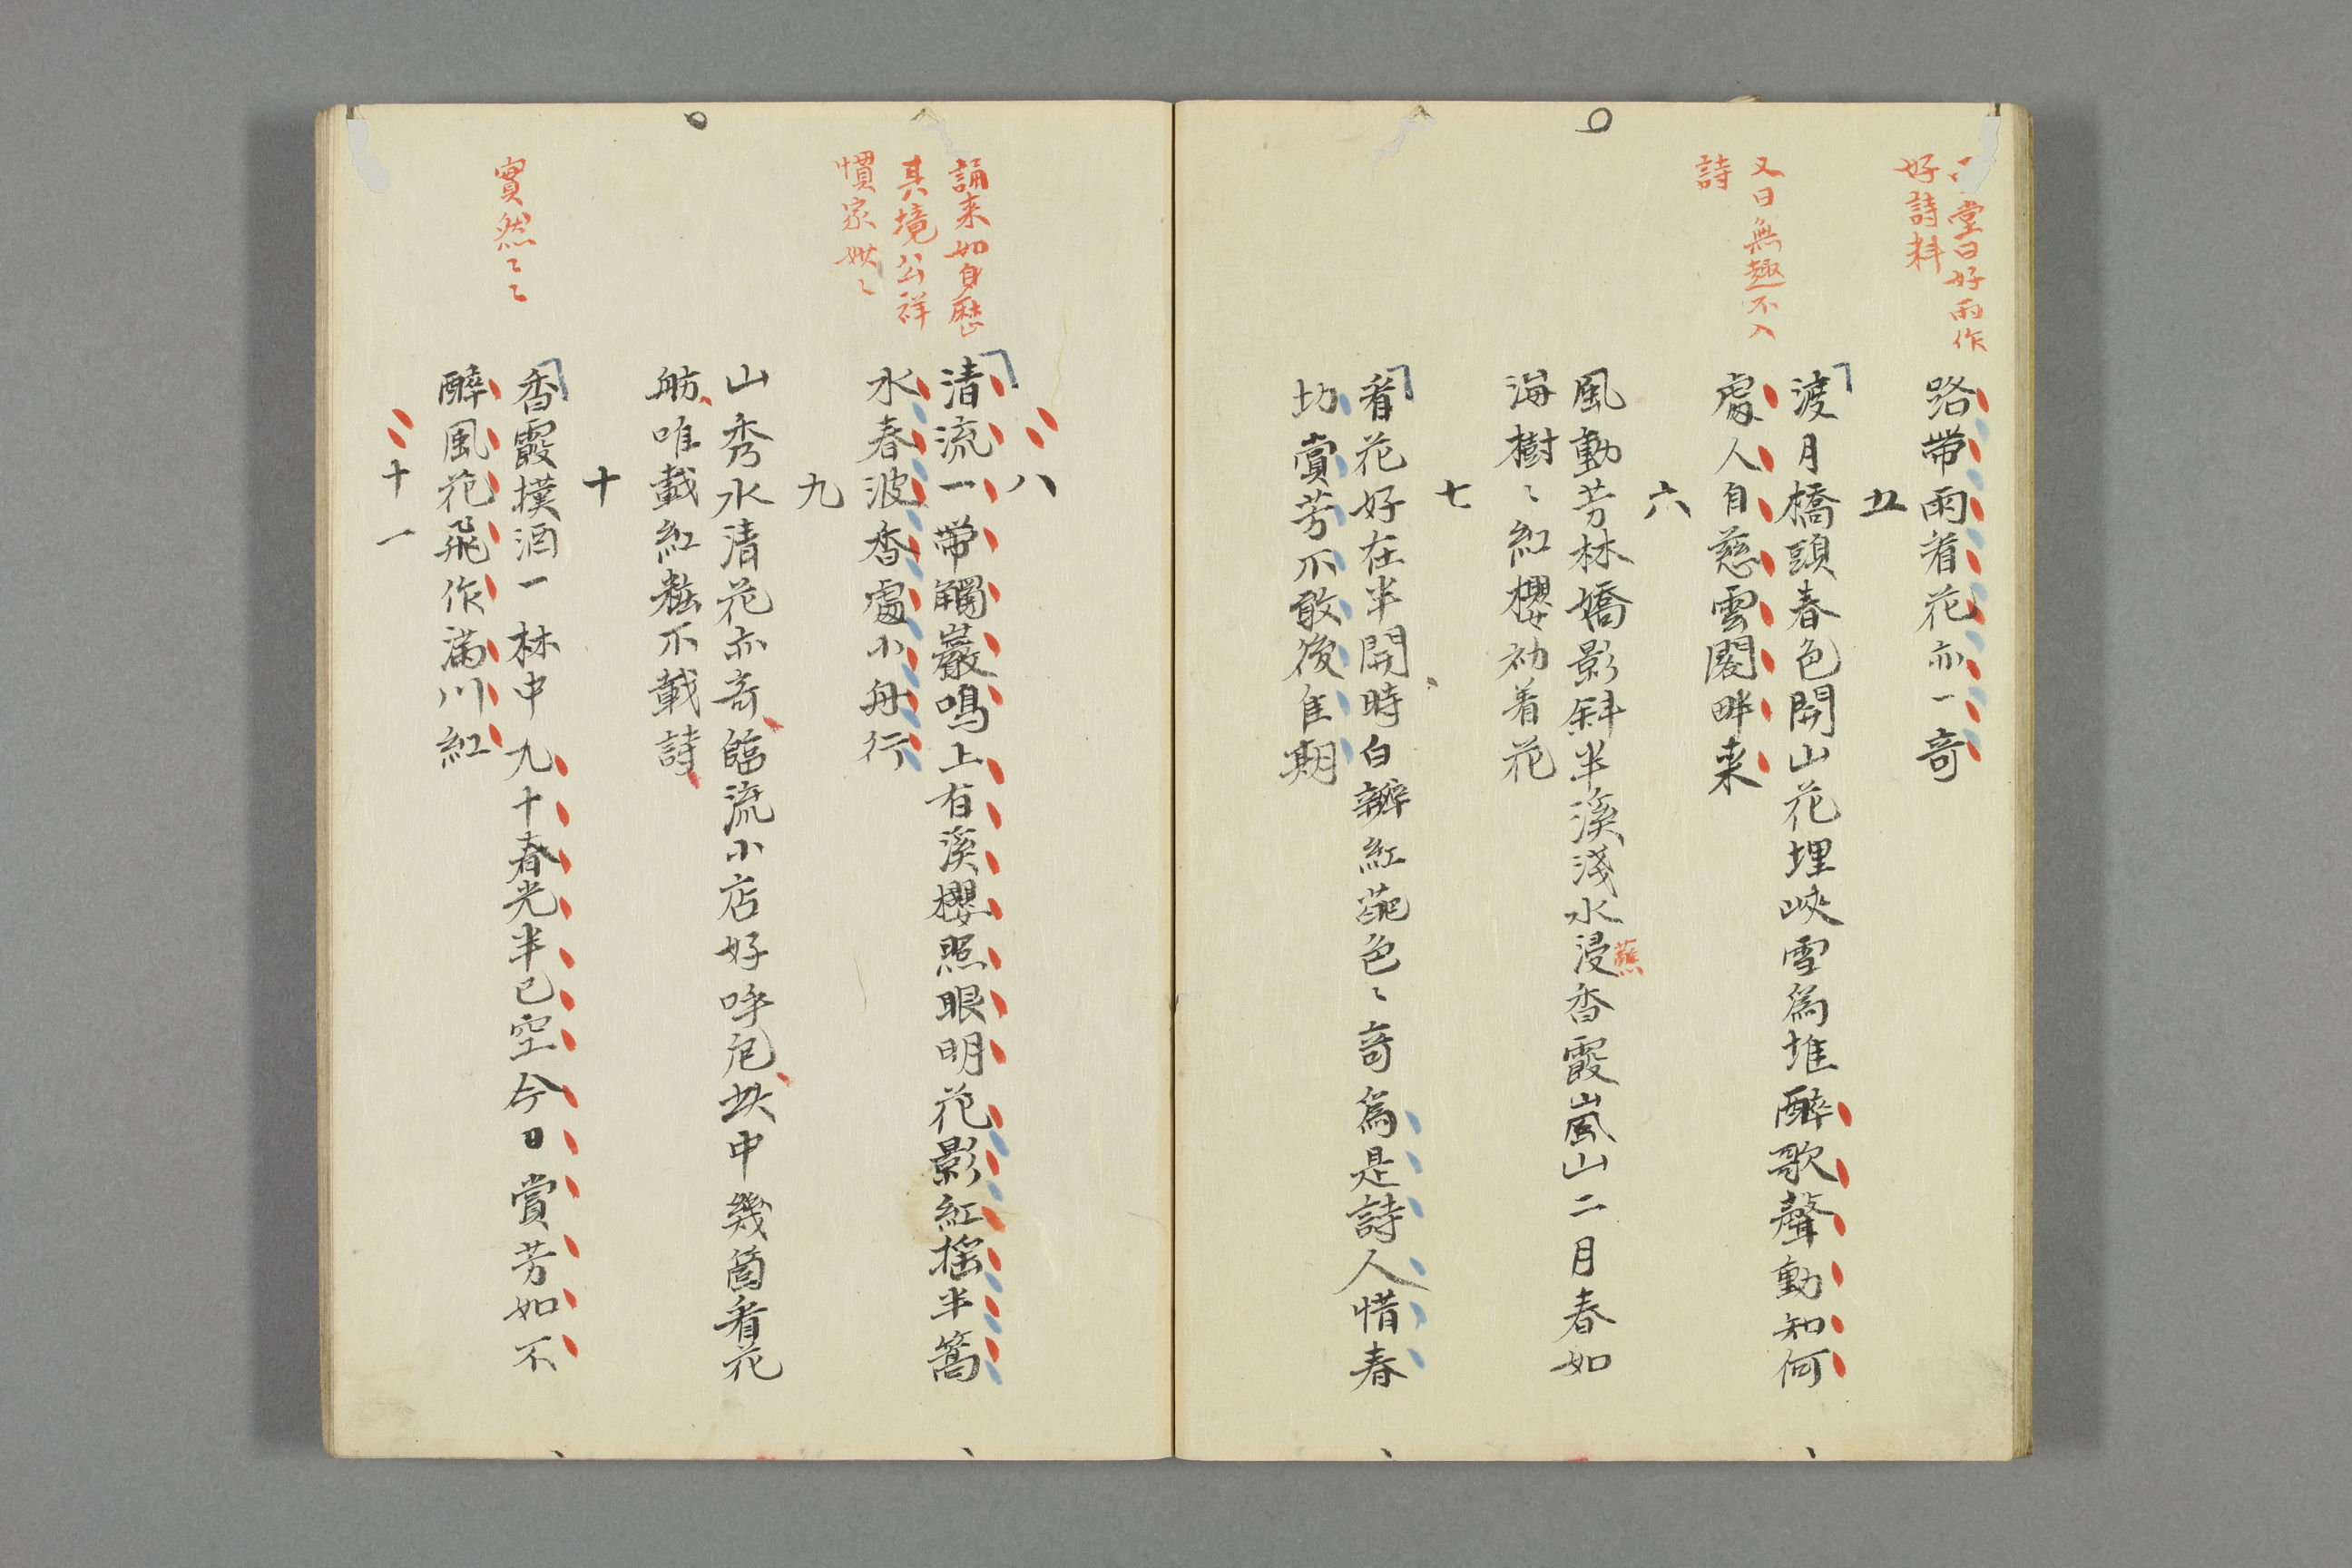 堂曰好雨作
好詩料
路帶雨着花亦一奇
五
又曰無趣不入
詩
渡月橋頭春色開山花埋峽雪為堆醉歌聲動知何
處人自慈雲閣畔来
六
風動芳林嬌影斜半溪淺水浸香霞嵐山二月春如
蘸
海樹〻紅櫻初着花
七
看花好在半開時白瓣紅葩色〻奇為是詩人惜春
切賞芳不敢後佳期
八
誦来如自歷
其境公祥
慣家
清流一帶觸巖鳴上有溪櫻照眼明花影紅搖半篙
水春波香處小舟行
九
山秀水清花亦奇臨流小店好呼卮就中幾箇看花
舫唯載紅粧不載詩
十
實然〻〻
香霞撲酒一林中九十春光半已空今日賞芳如不
醉風花飛作滿川紅
十一